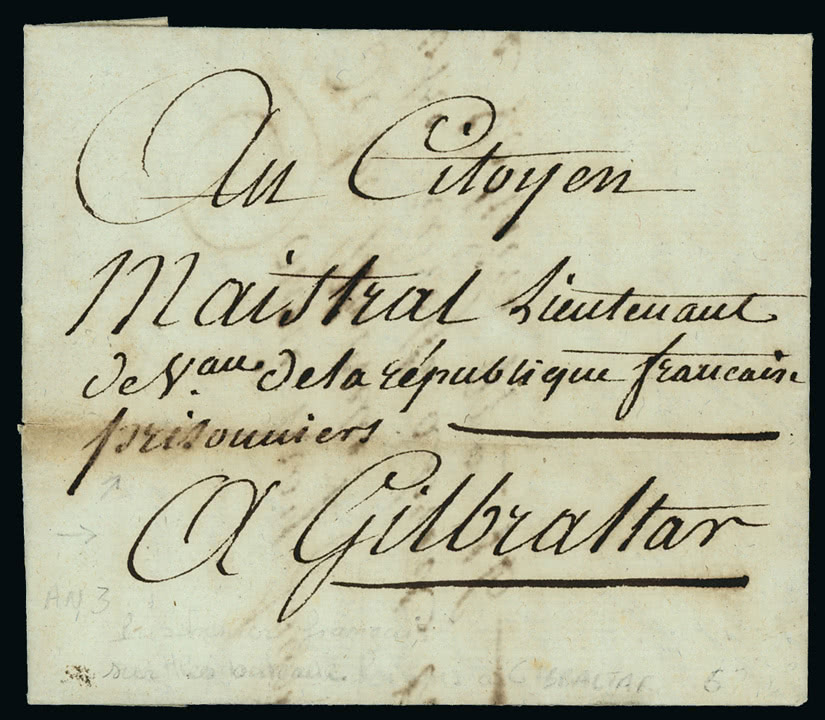 Au Citoyen
Maistral Lieutenant
de V.au de la république francaise
prisonniers
A Gilbraltar
AN 3
GIBRALTAR 5